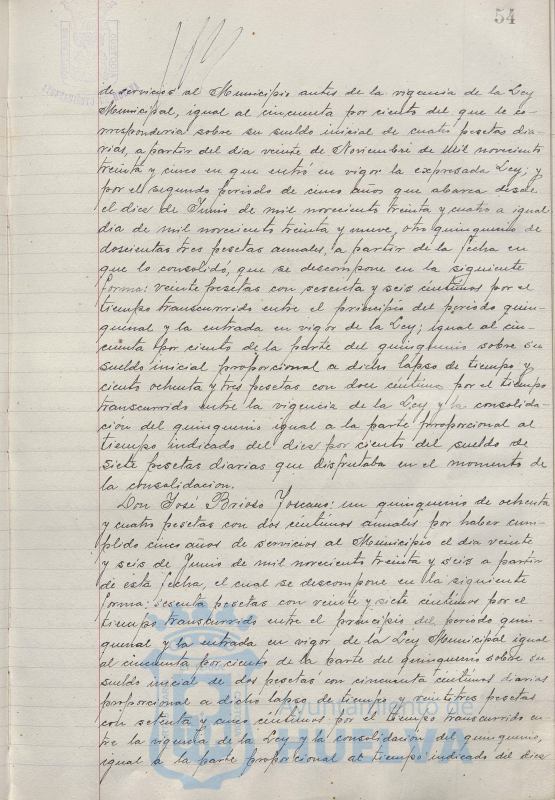 54
de servicios al Municipio antes de la vigencia de la Ley
Municipal, igual al cincuenta por ciento del que le co-
rrespondería sobre su sueldo inicial de cuatro pesetas dia-
rias, a partir del dia veinte de Noviembre de mil novecientos
treinta y cinco en que entró en vigor la expresada Ley; y
por el segundo periodo de cinco años que abarca desde
el diez de Junio de mil novecientos treinta y cuatro a igual
dia de mil novecientos treinta y nueve, otro quinquenio de
doscientas tres pesetas anuales, a partir de la fecha en
que lo consolidó, que se descompone en la siguiente
forma: veinte pesetas con sesenta y seis centimos por el
tiempo transcurrido entre el principio del periodo quin-
quenal y la entrada en vigor de la Ley; igual al cin-
cuenta por ciento de la parte del quinquenio sobre su
sueldo inicial proporcional a dicho lapso de tiempo y
ciento ochenta y tres pesetas con doce centimos por el tiempo
transcurrido entre la vigencia de la Ley y la consolida-
ción del quinquenio igual a la parte proporcional al
tiempo indicado del diez por ciento del sueldo de
siete pesetas diarias que disfrutaba en el momento de
la consolidacion.
Don José Brioso Toscano: un quinquenio de ochenta
y cuatro pesetas con dos centimos anuales por haber cum-
plido cinco años de servicios al Municipio el dia veinte
y seis de Junio de mil novecientos treinta y seis a partir
de esta fecha, el cual se descompone en la siguiente
forma: sesenta pesetas con veinte y siete centimos por el
tiempo transcurrido entre el principio del periodo quin-
quenal y la entrada en vigor de la Ley Municipal igual
al cincuenta por ciento de la parte del quinquenio sobre su
sueldo inicial de dos pesetas con cincuenta centimos diarias
proporcional a dicho lapso de tiempo y veintitres pesetas
con setenta y cinco centimos por el tiempo transcurrido en-
tre la vigencia de la Ley y la consolidación del quinquenio,
igual a la parte proporcional al tiempo indicado del diez
Ayuntamiento de
HUELVA